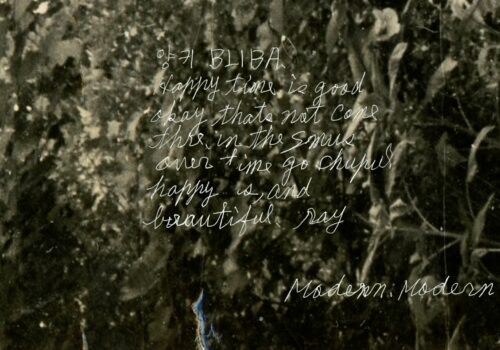 양키 BLIBA.
Happy time is good
okay thats not come
thre in the smus
over time go chupul
happy is, and
beautiful ray
Modenn. Modern